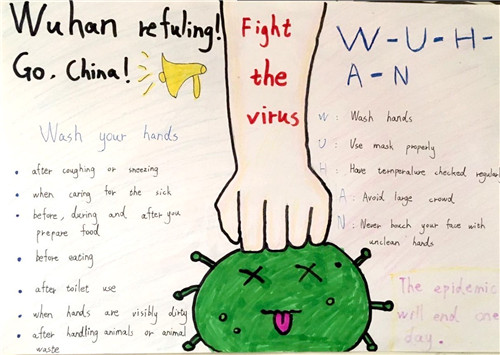 Wuhan refuling!
Go, China!
Fight
the
virus
W-U-H-
A-N
Wash your hands
after coughing or sneezing
when caring for the sick
before, during and after you
prepare food
before eating
after toilet use
when hands are visibly dirty
after handling animals or animal
waste
W: Wash hands
U: Use mask properly
H: Have temperature checked regular
A: Avoid large crowd
N: Never touch your face with
unclean hands
The epidemic
will end one
day.